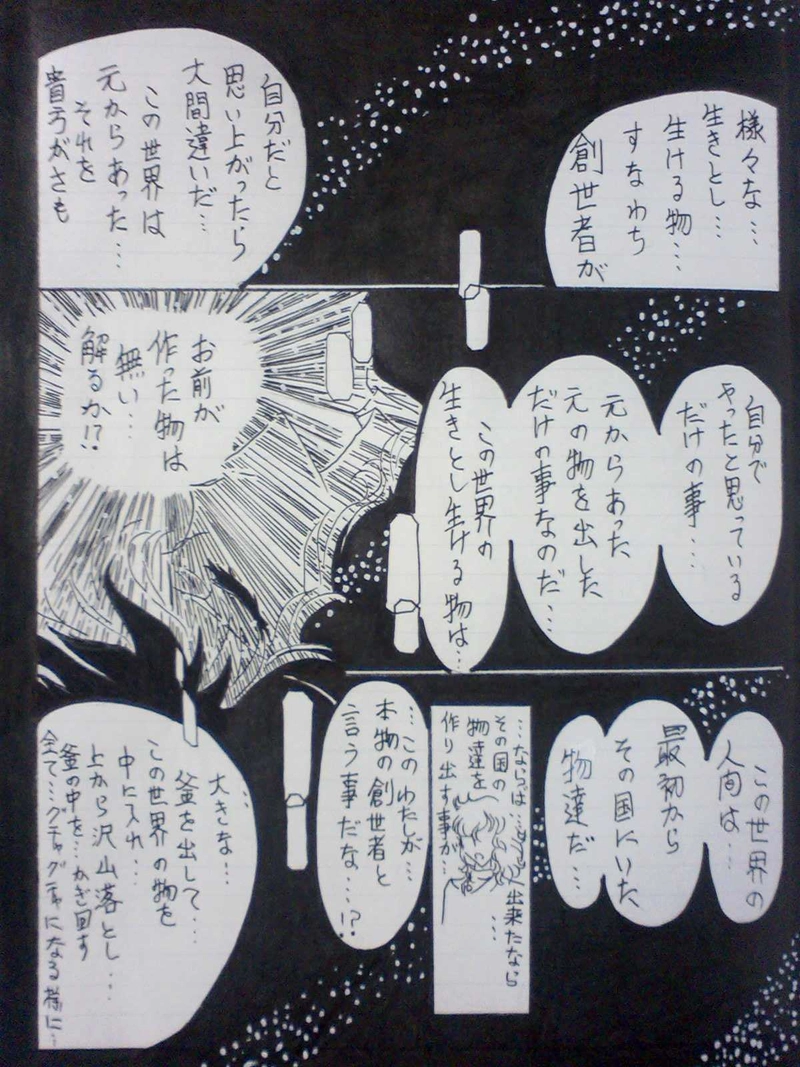 様々な…
生きとし…
生ける物…
すなわち
創世者が
自分だと
思い上がったら
大間違いだ…
この世界は
元からあった…
それを
貴方がさも
自分で
やったと思っている
だけの事…
元からあった
元の物を出した
だけの事なのだ…
この世界の
生きとし生ける物は…
お前が
作った物は
無い…
解るか!?
この世界の
人間は…
最初から
その国にいた
物達だ…
…ならば…
出来たなら…
その国の
物達を
作り出す事が…
…このわたしが…
本物の創世者と
言う事だな…!?
大きな…
釜を出して…
この世界の物を
中に入れ…
上から沢山落とし…
釜の中を…かき回す
全て…グチャグチャになる様に…